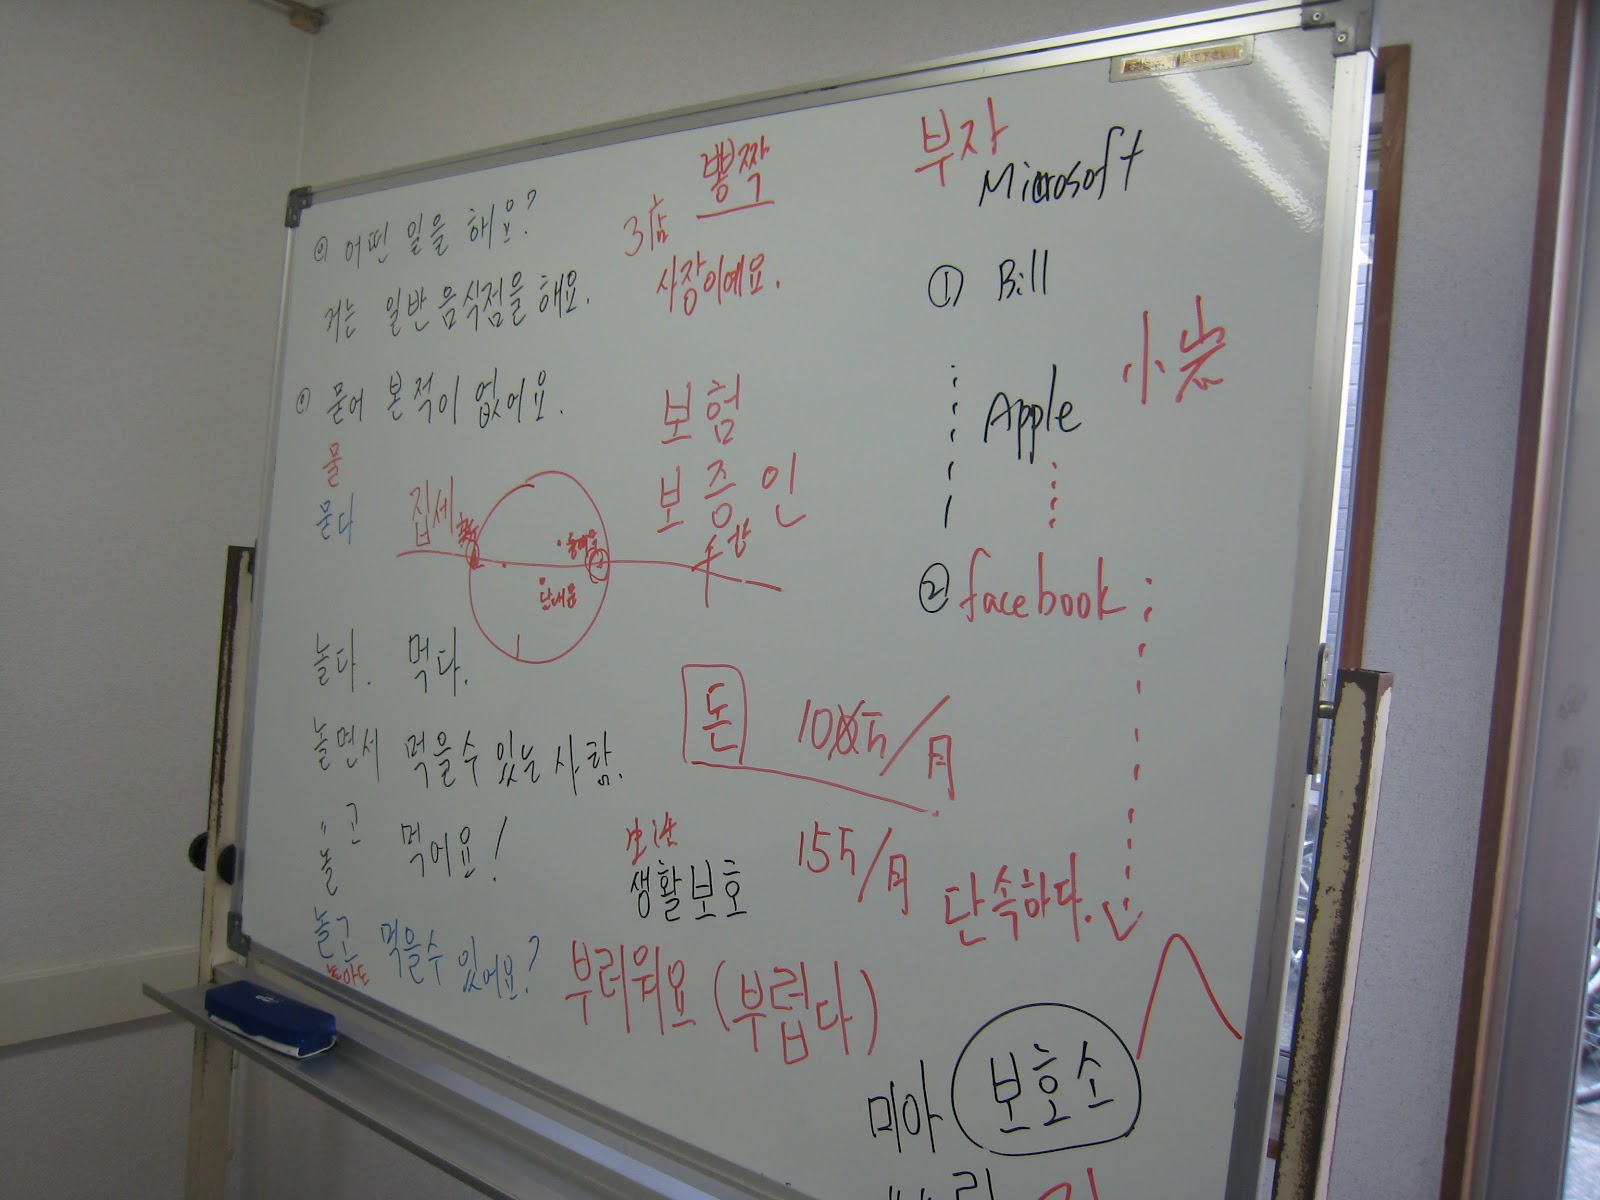 어떤 일을 해요?
저는 일반음식점을 해요.
뽕짝
3店
사장이예요.
묻어 본적이 없어요.
물
묻다
집세
보험
보증인
놀다. 먹다.
놀면서 먹을수 있는 사람.
〃고 먹어요!
놀
놀고 먹을수 있어요?
놀아도
돈
100万/月
15万/月
생활보호
부러워요 (부럽다)
단속하다.
부자
Microsoft
① Bill
Apple
小岩
② facebook
미아 보호소